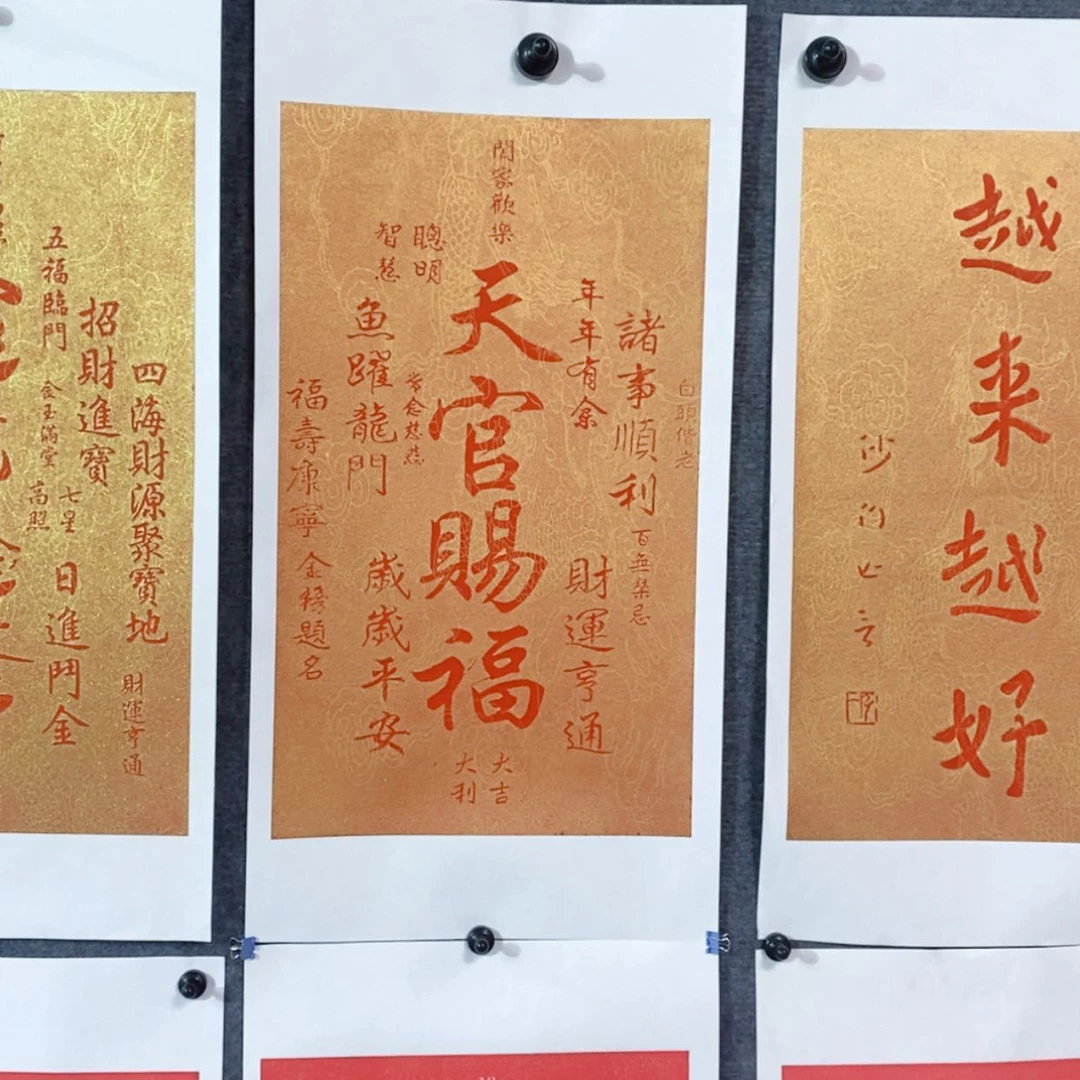 五福臨門
金玉滿堂
七星
高照
招財進寶
日進鬥金
四海財源聚寶地
財運亨通
闔家歡樂
聰明
智慧
天官賜福
年年有余
諸事順利
白頭偕老
百無禁忌
財運亨通
常念慈悲
魚躍龍門
歲歲平安
福壽康寧
金榜題名
大吉
大利
越来越好